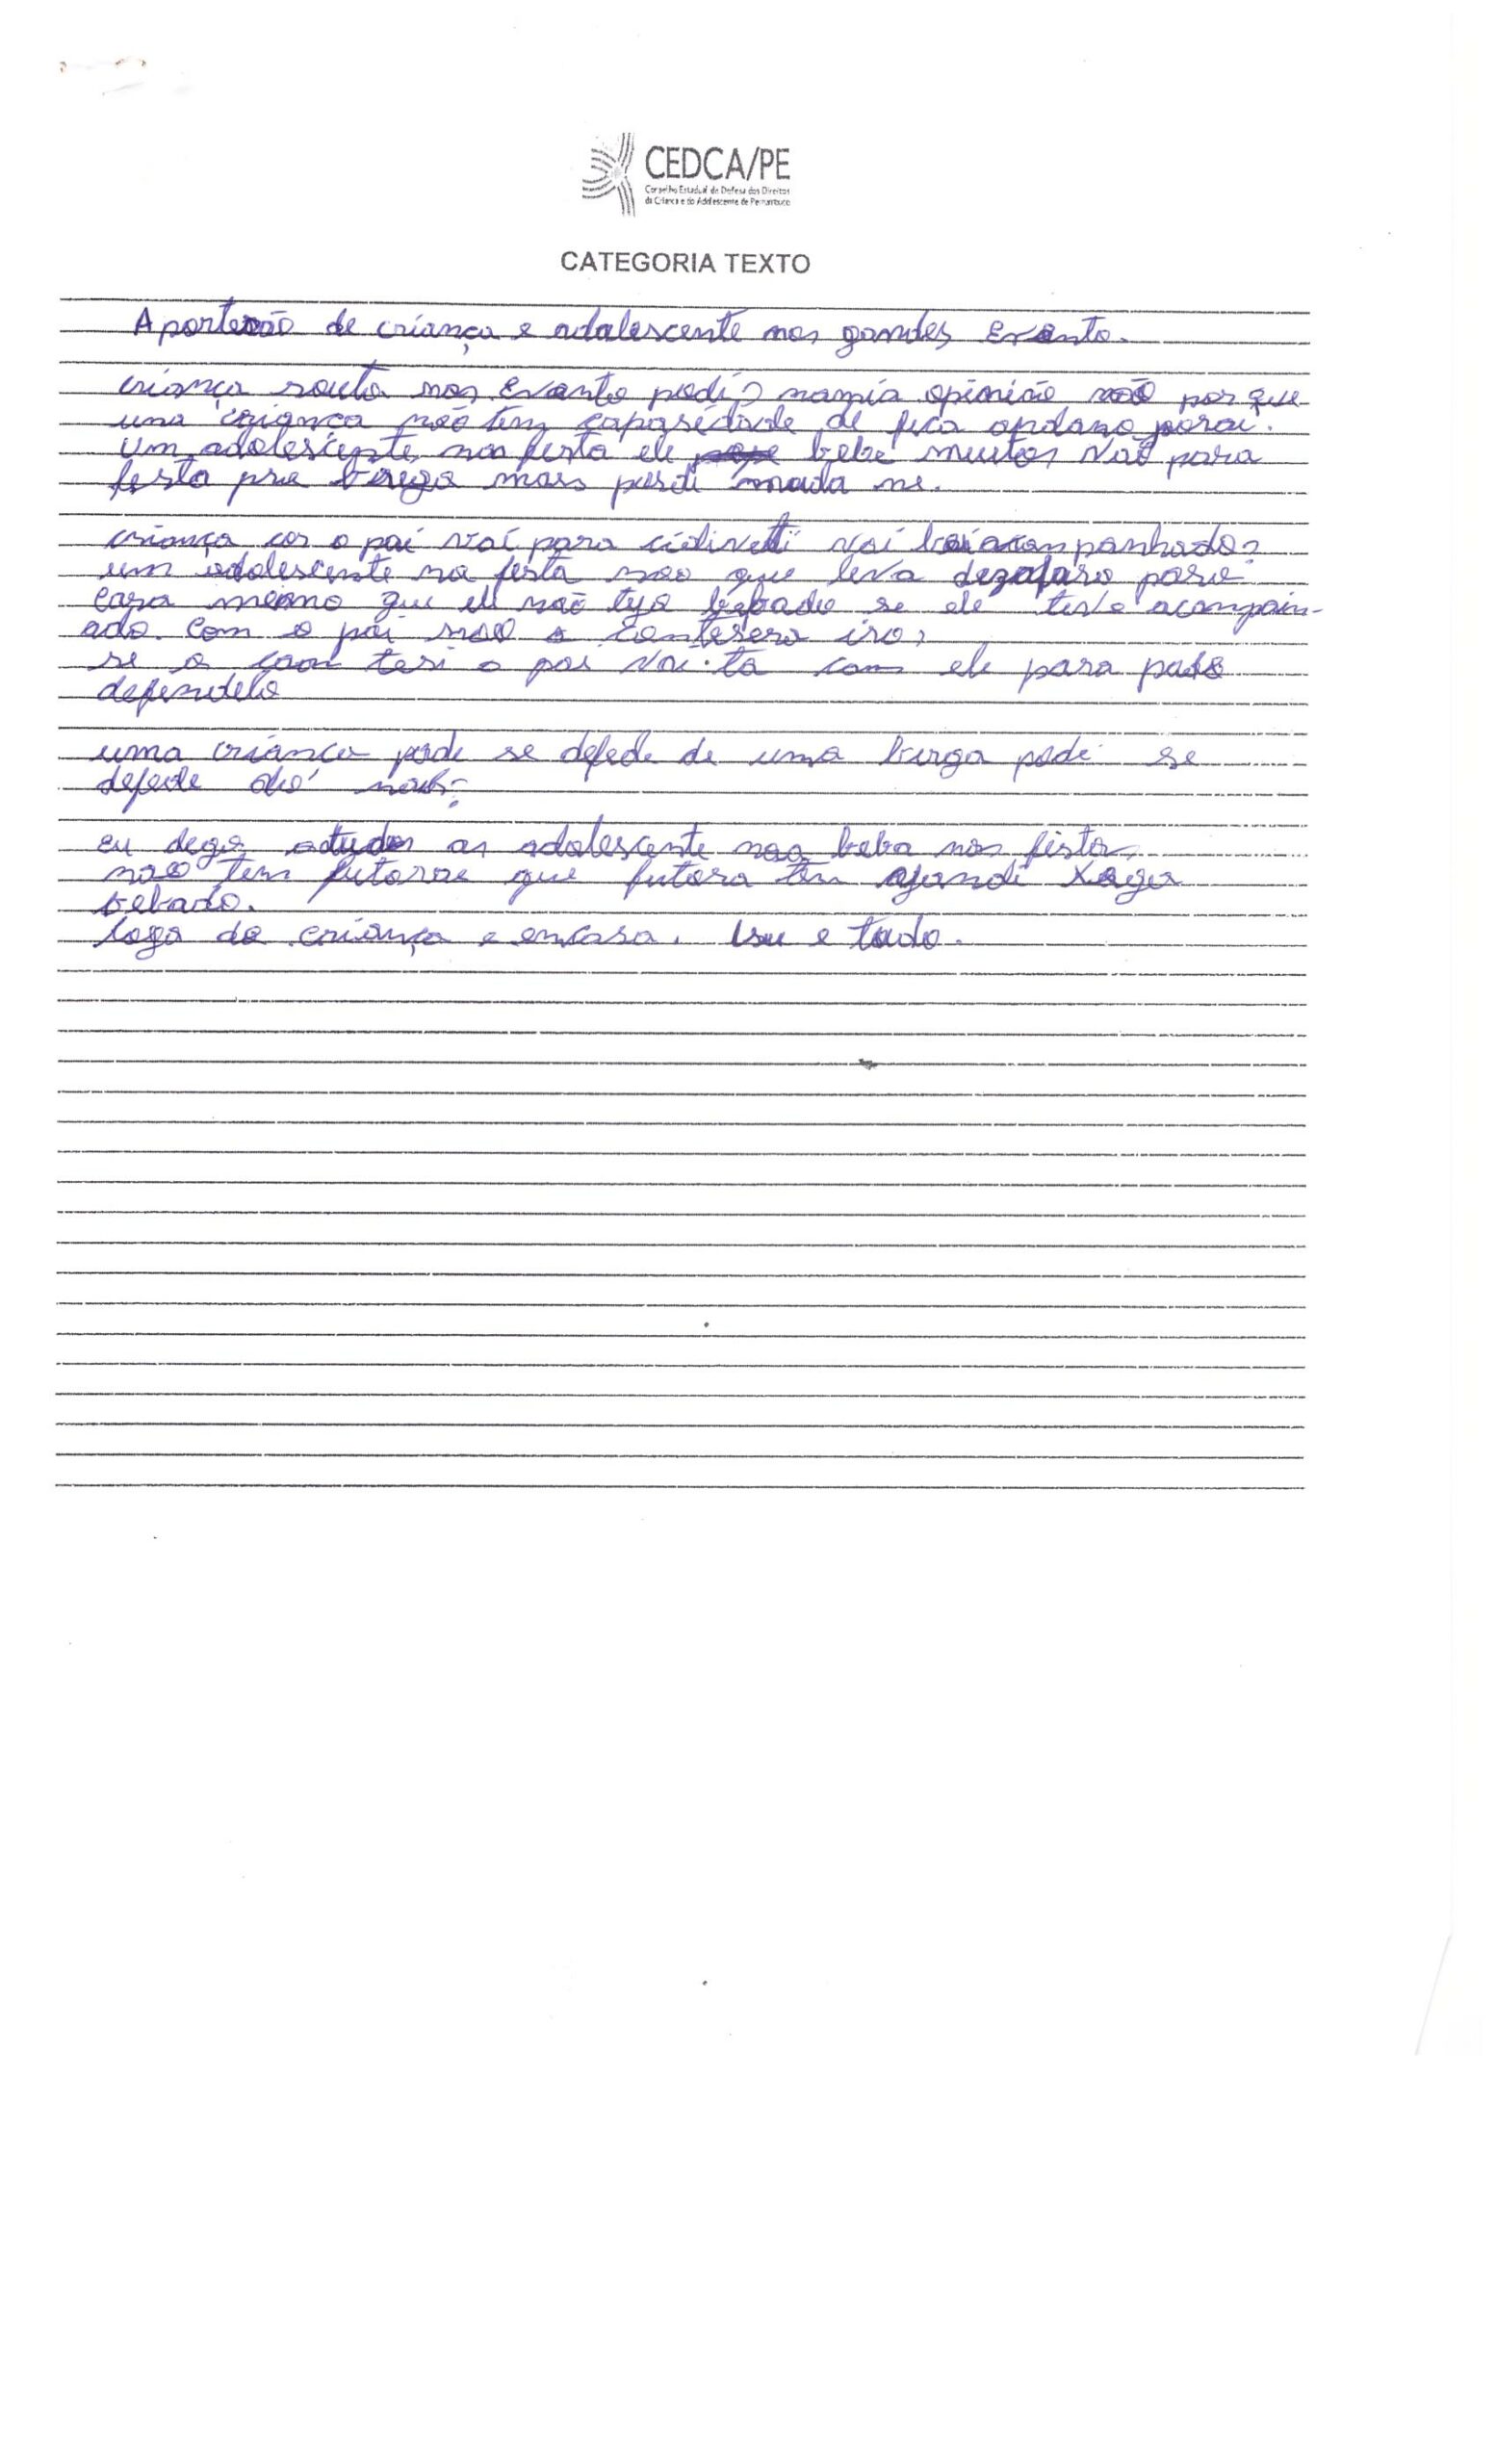 CEDCA/PE
Conselho Estadual de Defesa dos Direitos
da Criança e do Adolescente de Pernambuco
CATEGORIA TEXTO
A portecão de criança e adalescente nos gandes Evento.
criança souta nos Evanto podi? namia opinião não por que
uma criança não tem capasidade de fica andano porai.
Um adolescente na festa ele bebe muitos vao para
festa pra birga mais perdi nada ne.
criança cos o pai vai para cidiveti vai acompanhado?
um adolescente na festa nao que leva dezafaro para
casa mesmo que ele não teja bebado se ele tive acompain-
ado. Com o pai nao a contesera iso,
se a com tesi o pai vai ta com ele para pude
defendelo
uma criança pode se defede de uma birga podi se
defede não?
eu dego a tudos as adolescente nao beba nas festas
nao tem futorae que futora tem Xega
bebado.
loga da criança e encasa. Isu e tudo.